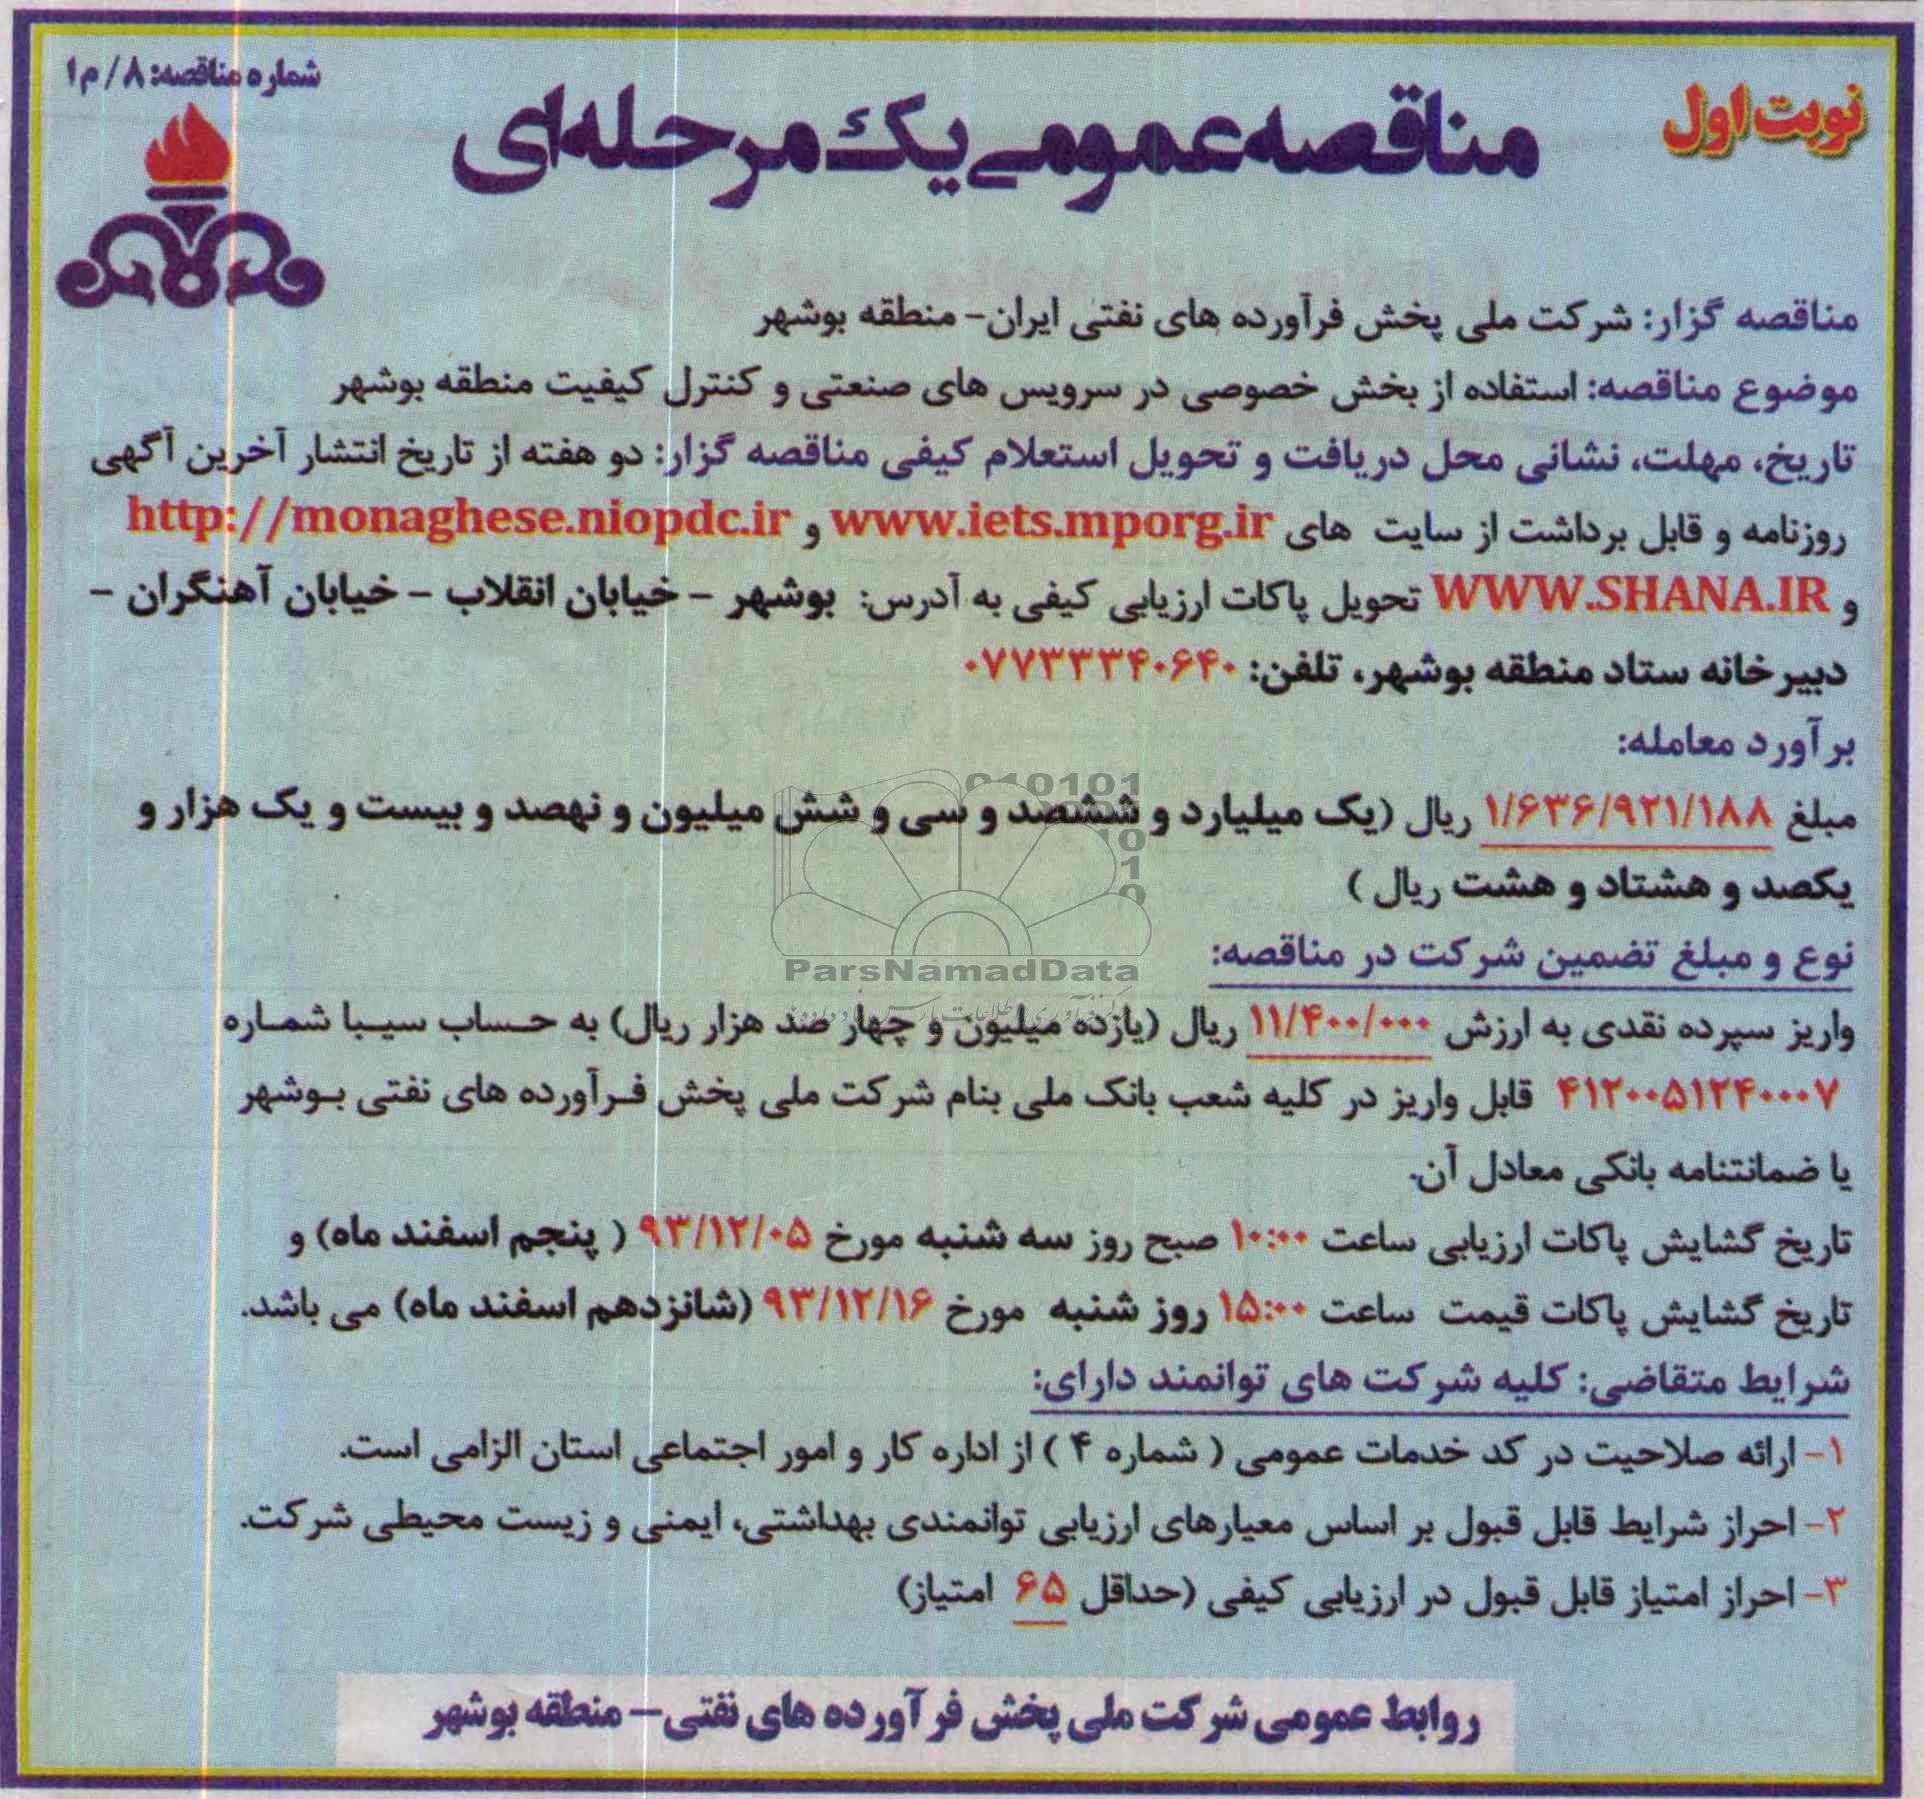 شماره مناقصه: ۸/ م۱
نوبت اول
مناقصه عمومی یک مرحله‌ای
مناقصه گزار: شرکت ملی پخش فرآورده های نفتی ایران- منطقه بوشهر
موضوع مناقصه: استفاده از بخش خصوصی در سرویس های صنعتی و کنترل کیفیت منطقه بوشهر
تاریخ، مهلت، نشانی محل دریافت و تحویل استعلام کیفی مناقصه گزار: دو هفته از تاریخ انتشار آخرین آگهی
روزنامه و قابل برداشت از سایت های www.iets.mporg.ir و http://monaghese.niopdc.ir
و WWW.SHANA.IR تحویل پاکات ارزیابی کیفی به آدرس: بوشهر - خیابان انقلاب - خیابان آهنگران -
دبیرخانه ستاد منطقه بوشهر، تلفن: ۰۷۷۳۳۳۴۰۶۴۰
برآورد معامله:
مبلغ ۱/۶۳۶/۹۲۱/۱۸۸ ریال (یک میلیارد و ششصد و سی و شش میلیون و نهصد و بیست و یک هزار و
یکصد و هشتاد و هشت ریال )
نوع و مبلغ تضمین شرکت در مناقصه:
واریز سپرده نقدی به ارزش ۱۱/۴۰۰/۰۰۰ ریال (یازده میلیون و چهار صد هزار ریال) به حساب سیبا شماره
۴۱۲۰۰۵۱۲۴۰۰۰۷ قابل واریز در کلیه شعب بانک ملی بنام شرکت ملی پخش فرآورده های نفتی بوشهر
یا ضمانتنامه بانکی معادل آن.
تاریخ گشایش پاکات ارزیابی ساعت ۱۰:۰۰ صبح روز سه شنبه مورخ ۹۳/۱۲/۰۵ ( پنجم اسفند ماه) و
تاریخ گشایش پاکات قیمت ساعت ۱۵:۰۰ روز شنبه مورخ ۹۳/۱۲/۱۶ (شانزدهم اسفند ماه) می باشد.
شرایط متقاضی: کلیه شرکت های توانمند دارای:
۱- ارائه صلاحیت در کد خدمات عمومی ( شماره ۴ ) از اداره کار و امور اجتماعی استان الزامی است.
۲- احراز شرایط قابل قبول بر اساس معیارهای ارزیابی توانمندی بهداشتی، ایمنی و زیست محیطی شرکت.
۳- احراز امتیاز قابل قبول در ارزیابی کیفی (حداقل ۶۵ امتیاز)
روابط عمومی شرکت ملی پخش فرآورده های نفتی- منطقه بوشهر
ParsNamadData